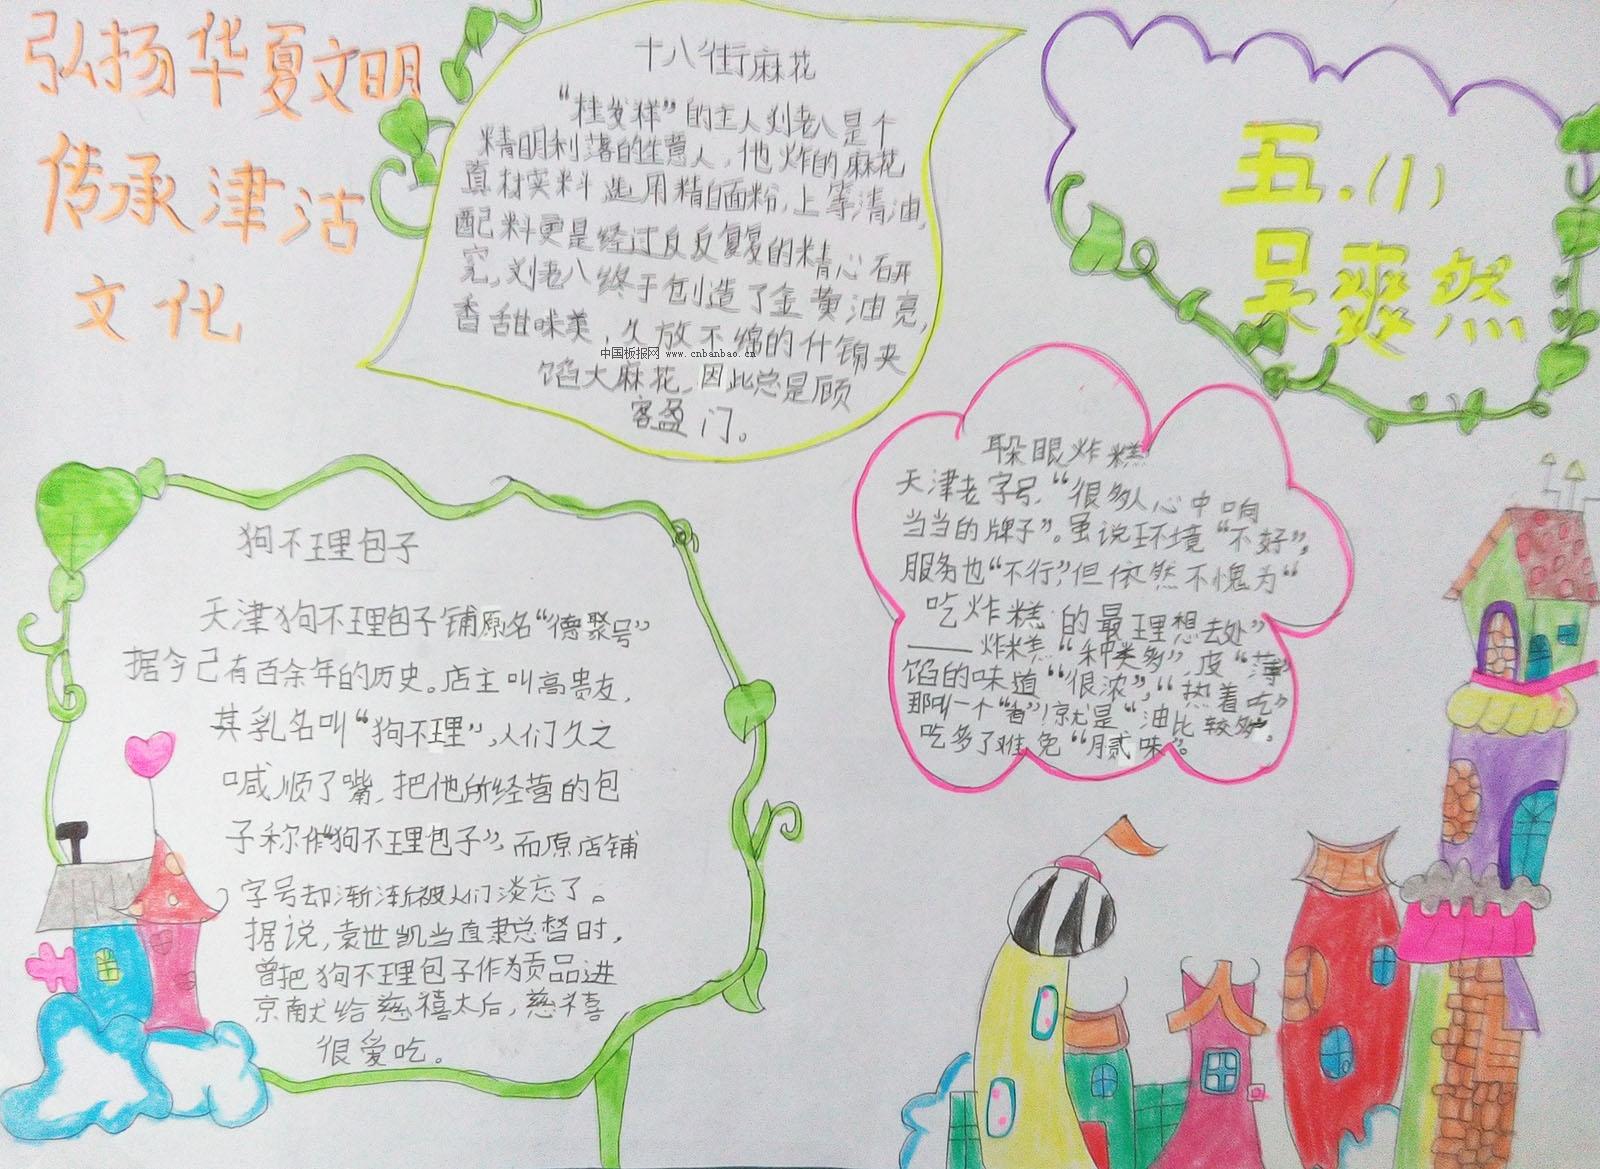 弘扬华夏文明
传承津沽
文化
十八街麻花
“桂发祥”的主人刘老八是个
精明利落的生意人，他炸的麻花
真材实料选用精白面粉，上等清油，
配料更是经过反反复复的精心研
究，刘老八终于创造了金黄油亮，
香甜味美，久放不绵的什锦夹
馅大麻花，因此总是顾
客盈门。
中国板报网 www.cnbanbao.cn
五.(1)
吴爽然
狗不理包子
天津狗不理包子铺原名“德聚号”
据今已有百余年的历史。店主叫高贵友，
其乳名叫“狗不理”，人们久之
喊顺了嘴，把他所经营的包
子称作“狗不理包子”，而原店铺
字号却渐渐被人们淡忘了。
据说，袁世凯当直隶总督时，
曾把狗不理包子作为贡品进
京献给慈禧太后，慈禧
很爱吃。
耳朵眼炸糕
天津老字号，“很多人心中响
当当的牌子”。虽说环境“不好”，
服务也“不行”，但依然不愧为“
吃炸糕的最理想去处”
——炸糕“种类多”，皮“薄”
馅的味道“很浓”，“热着吃”
那叫一个“香”！就是“油比较多”，
吃多了难免“腻味”。